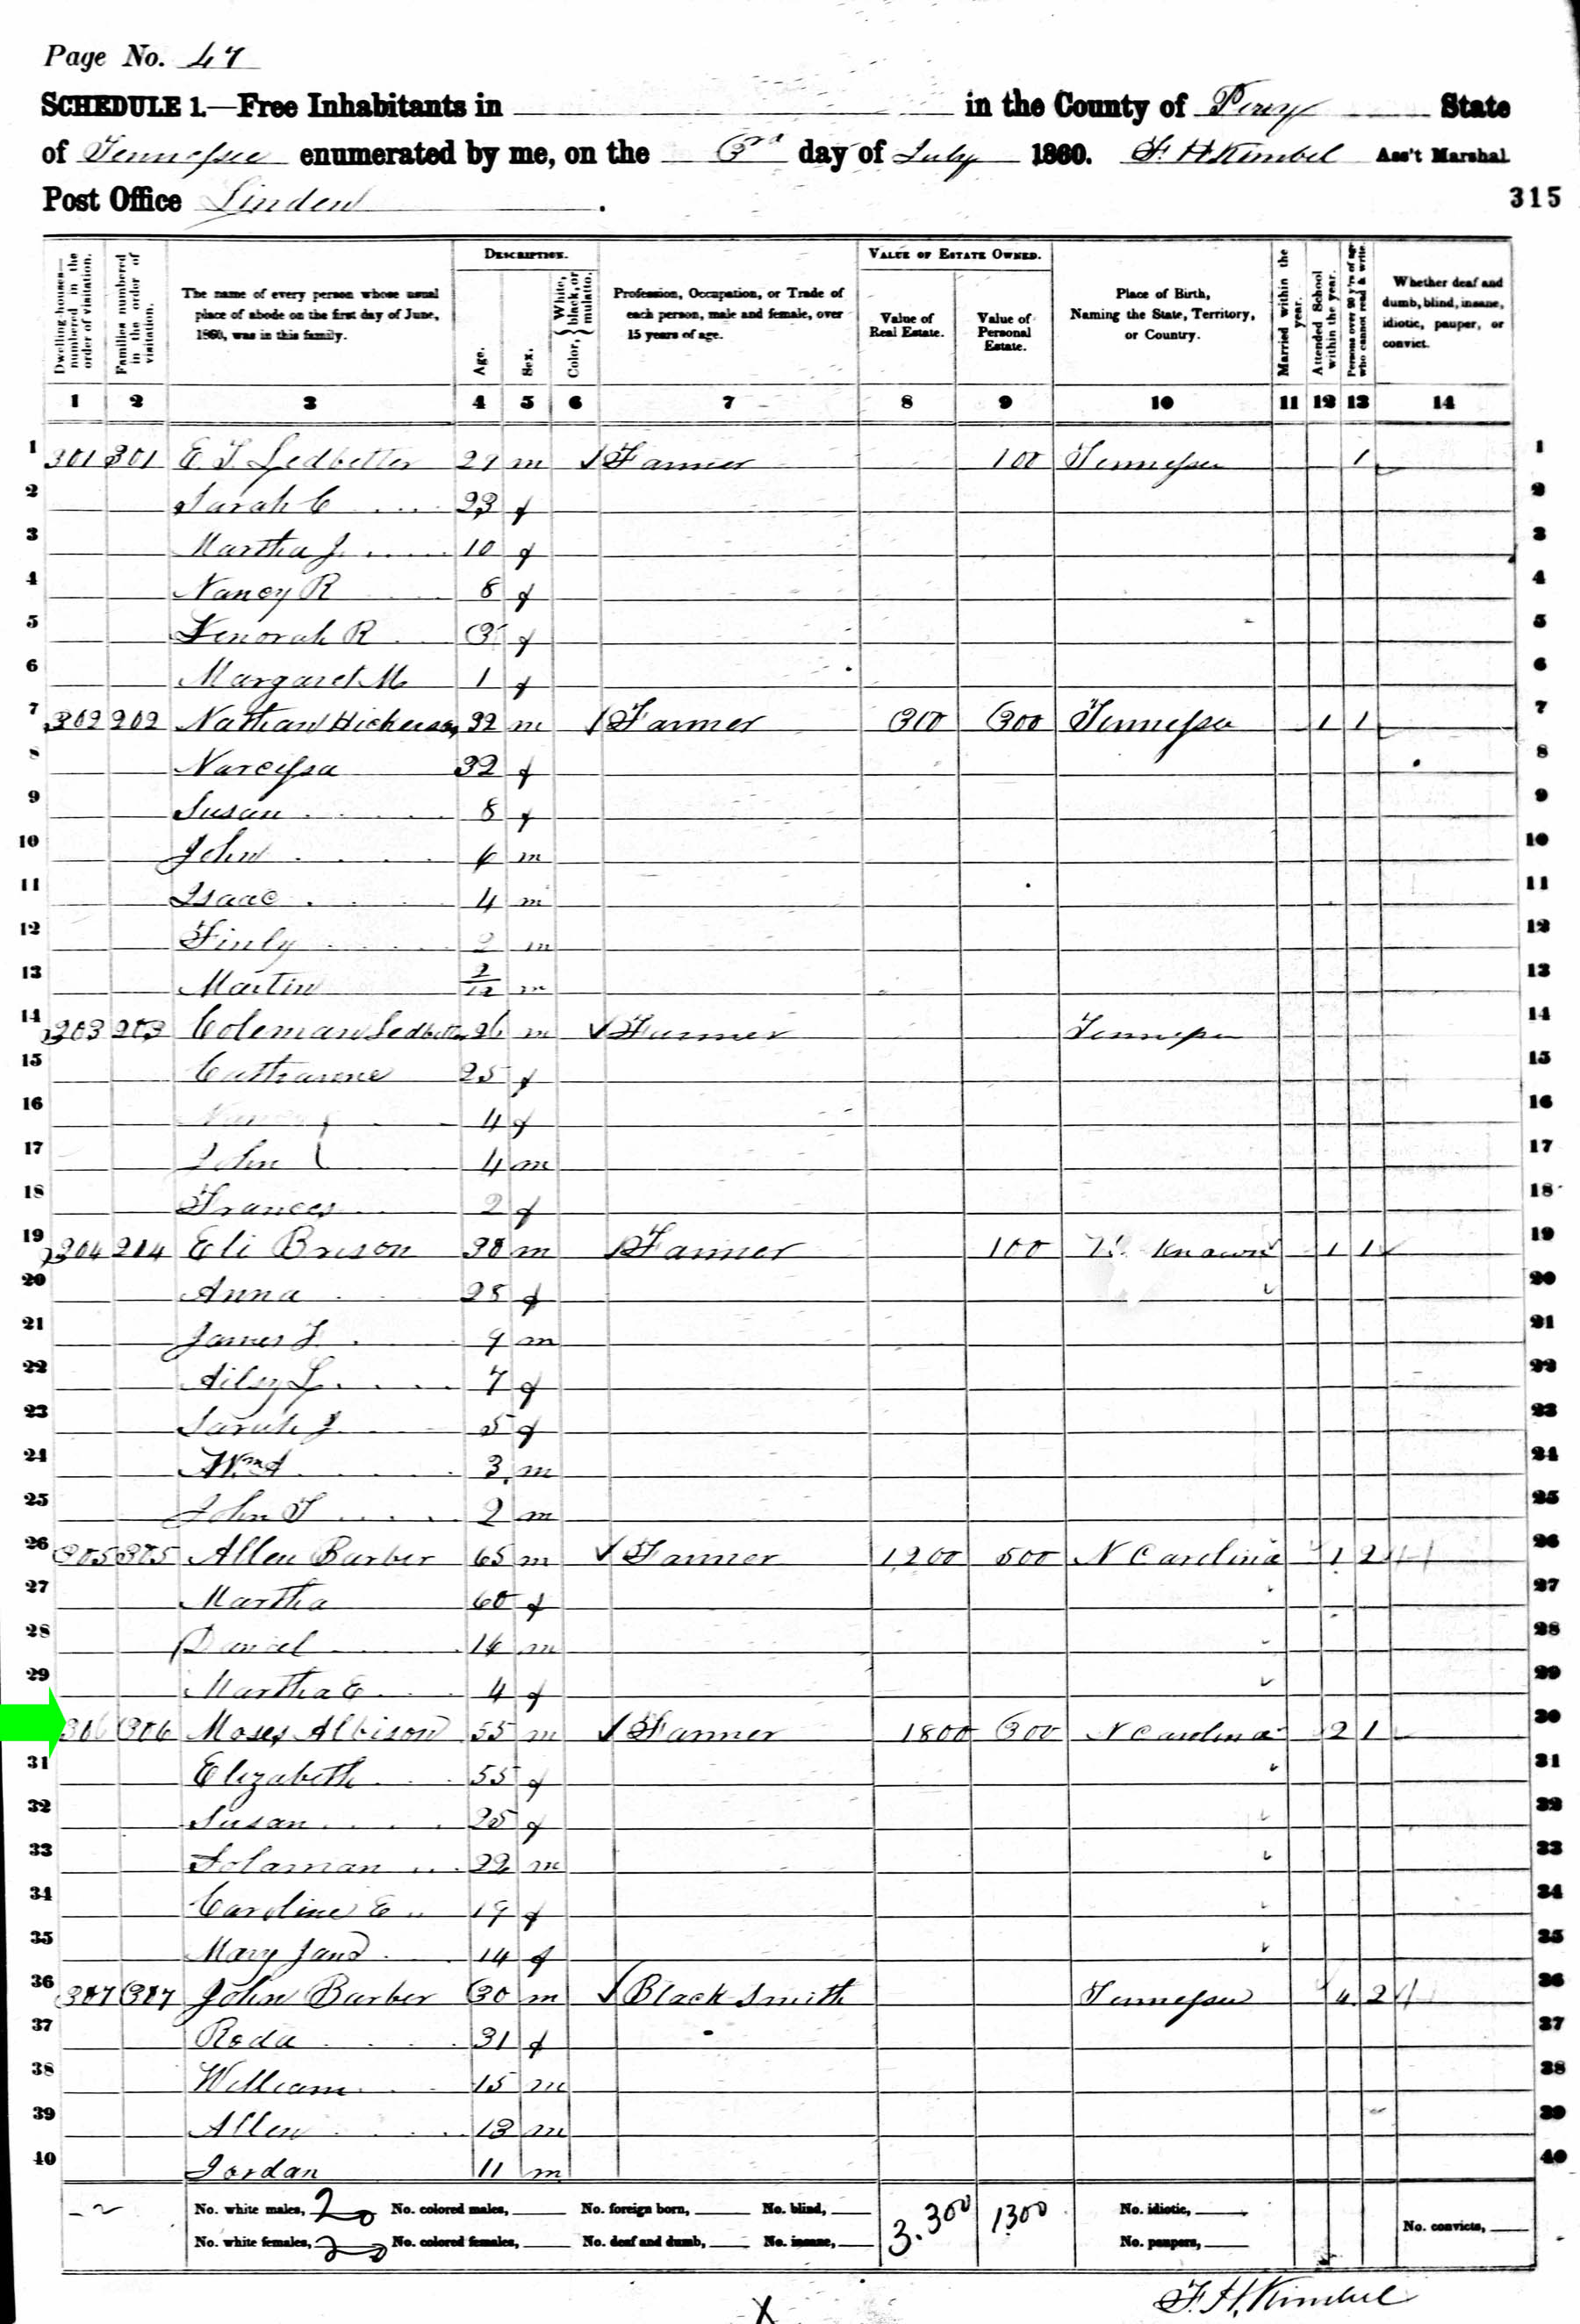 Page No. 47
SCHEDULE 1.—Free Inhabitants in in the County of Perry State
of Tennessee enumerated by me, on the 3rd day of July 1860. F. H Kimbel Ass't Marshal
Post Office Linden . 315
Dwelling-houses—numbered in the order of visitation.
Families numbered in the order of visitation.
The name of every person whose usual place of abode on the first day of June, 1860, was in this family.
DESCRIPTION.
Age.
Sex.
Color, { White, black, or mulatto.
Profession, Occupation, or Trade of each person, male and female, over 15 years of age.
VALUE OF ESTATE OWNED.
Value of Real Estate.
Value of Personal Estate.
Place of Birth, Naming the State, Territory, or Country.
Married within the year.
Attended School within the year.
Persons over 20 y'rs of age who cannot read & write.
Whether deaf and dumb, blind, insane, idiotic, pauper, or convict.
1 2 3 4 5 6 7 8 9 10 11 12 13 14
1 301 301 E. T. Ledbetter 29 m Farmer 100 Tennessee 1 1
2 Sarah C 23 f 2
3 Martha J. 10 f 3
4 Nancy R 8 f 4
5 Lenorah R 3 f 5
6 Margaret M 1 f 6
7 302 202 Nathan Hickerson 32 m Farmer 300 300 Tennessee 1 1 7
8 Narcissa 32 f 8
9 Susan 8 f 9
10 John 6 m 10
11 Isaac 4 m 11
12 Finly 2 m 12
13 Martin 2/12 m 13
14 203 203 Coleman Ledbetter 26 m Farmer Tennessee 14
15 Catharine 25 f 15
16 Nancy 4 f 16
17 John 4 m 17
18 Frances 2 f 18
19 204 204 Eli Brison 38 m Farmer 100 Known 1 1 19
20 Anna 28 f 20
21 James T 9 m 21
22 Ailsy L 7 f 22
23 Sarah J 5 f 23
24 Wm A 3 m 24
25 John T 2 m 25
26 305 305 Allen Barber 65 m Farmer 1200 500 N Carolina 1 2 26
27 Martha 60 f 27
28 Daniel 14 m 28
29 Martha E 4 f 29
30 306 306 Moses Albison 55 m Farmer 1800 300 N Carolina 2 1 30
31 Elizabeth 55 f 31
32 Susan 25 f 32
33 Solaman 22 m 33
34 Caroline E 19 f 34
35 Mary Jane 14 f 35
36 307 307 John Barber 30 m Black Smith Tennessee 4 2 36
37 Roda 31 f 37
38 William 15 m 38
39 Allen 13 m 39
40 Jordan 11 m 40
No. white males, 20 No. colored males, No. foreign born, No. blind, 3.300 1300 No. idiotic,
No. white females, 20 No. colored females, No. deaf and dumb, No. insane, No. paupers, No. convicts,
F. H. Kimbel
X